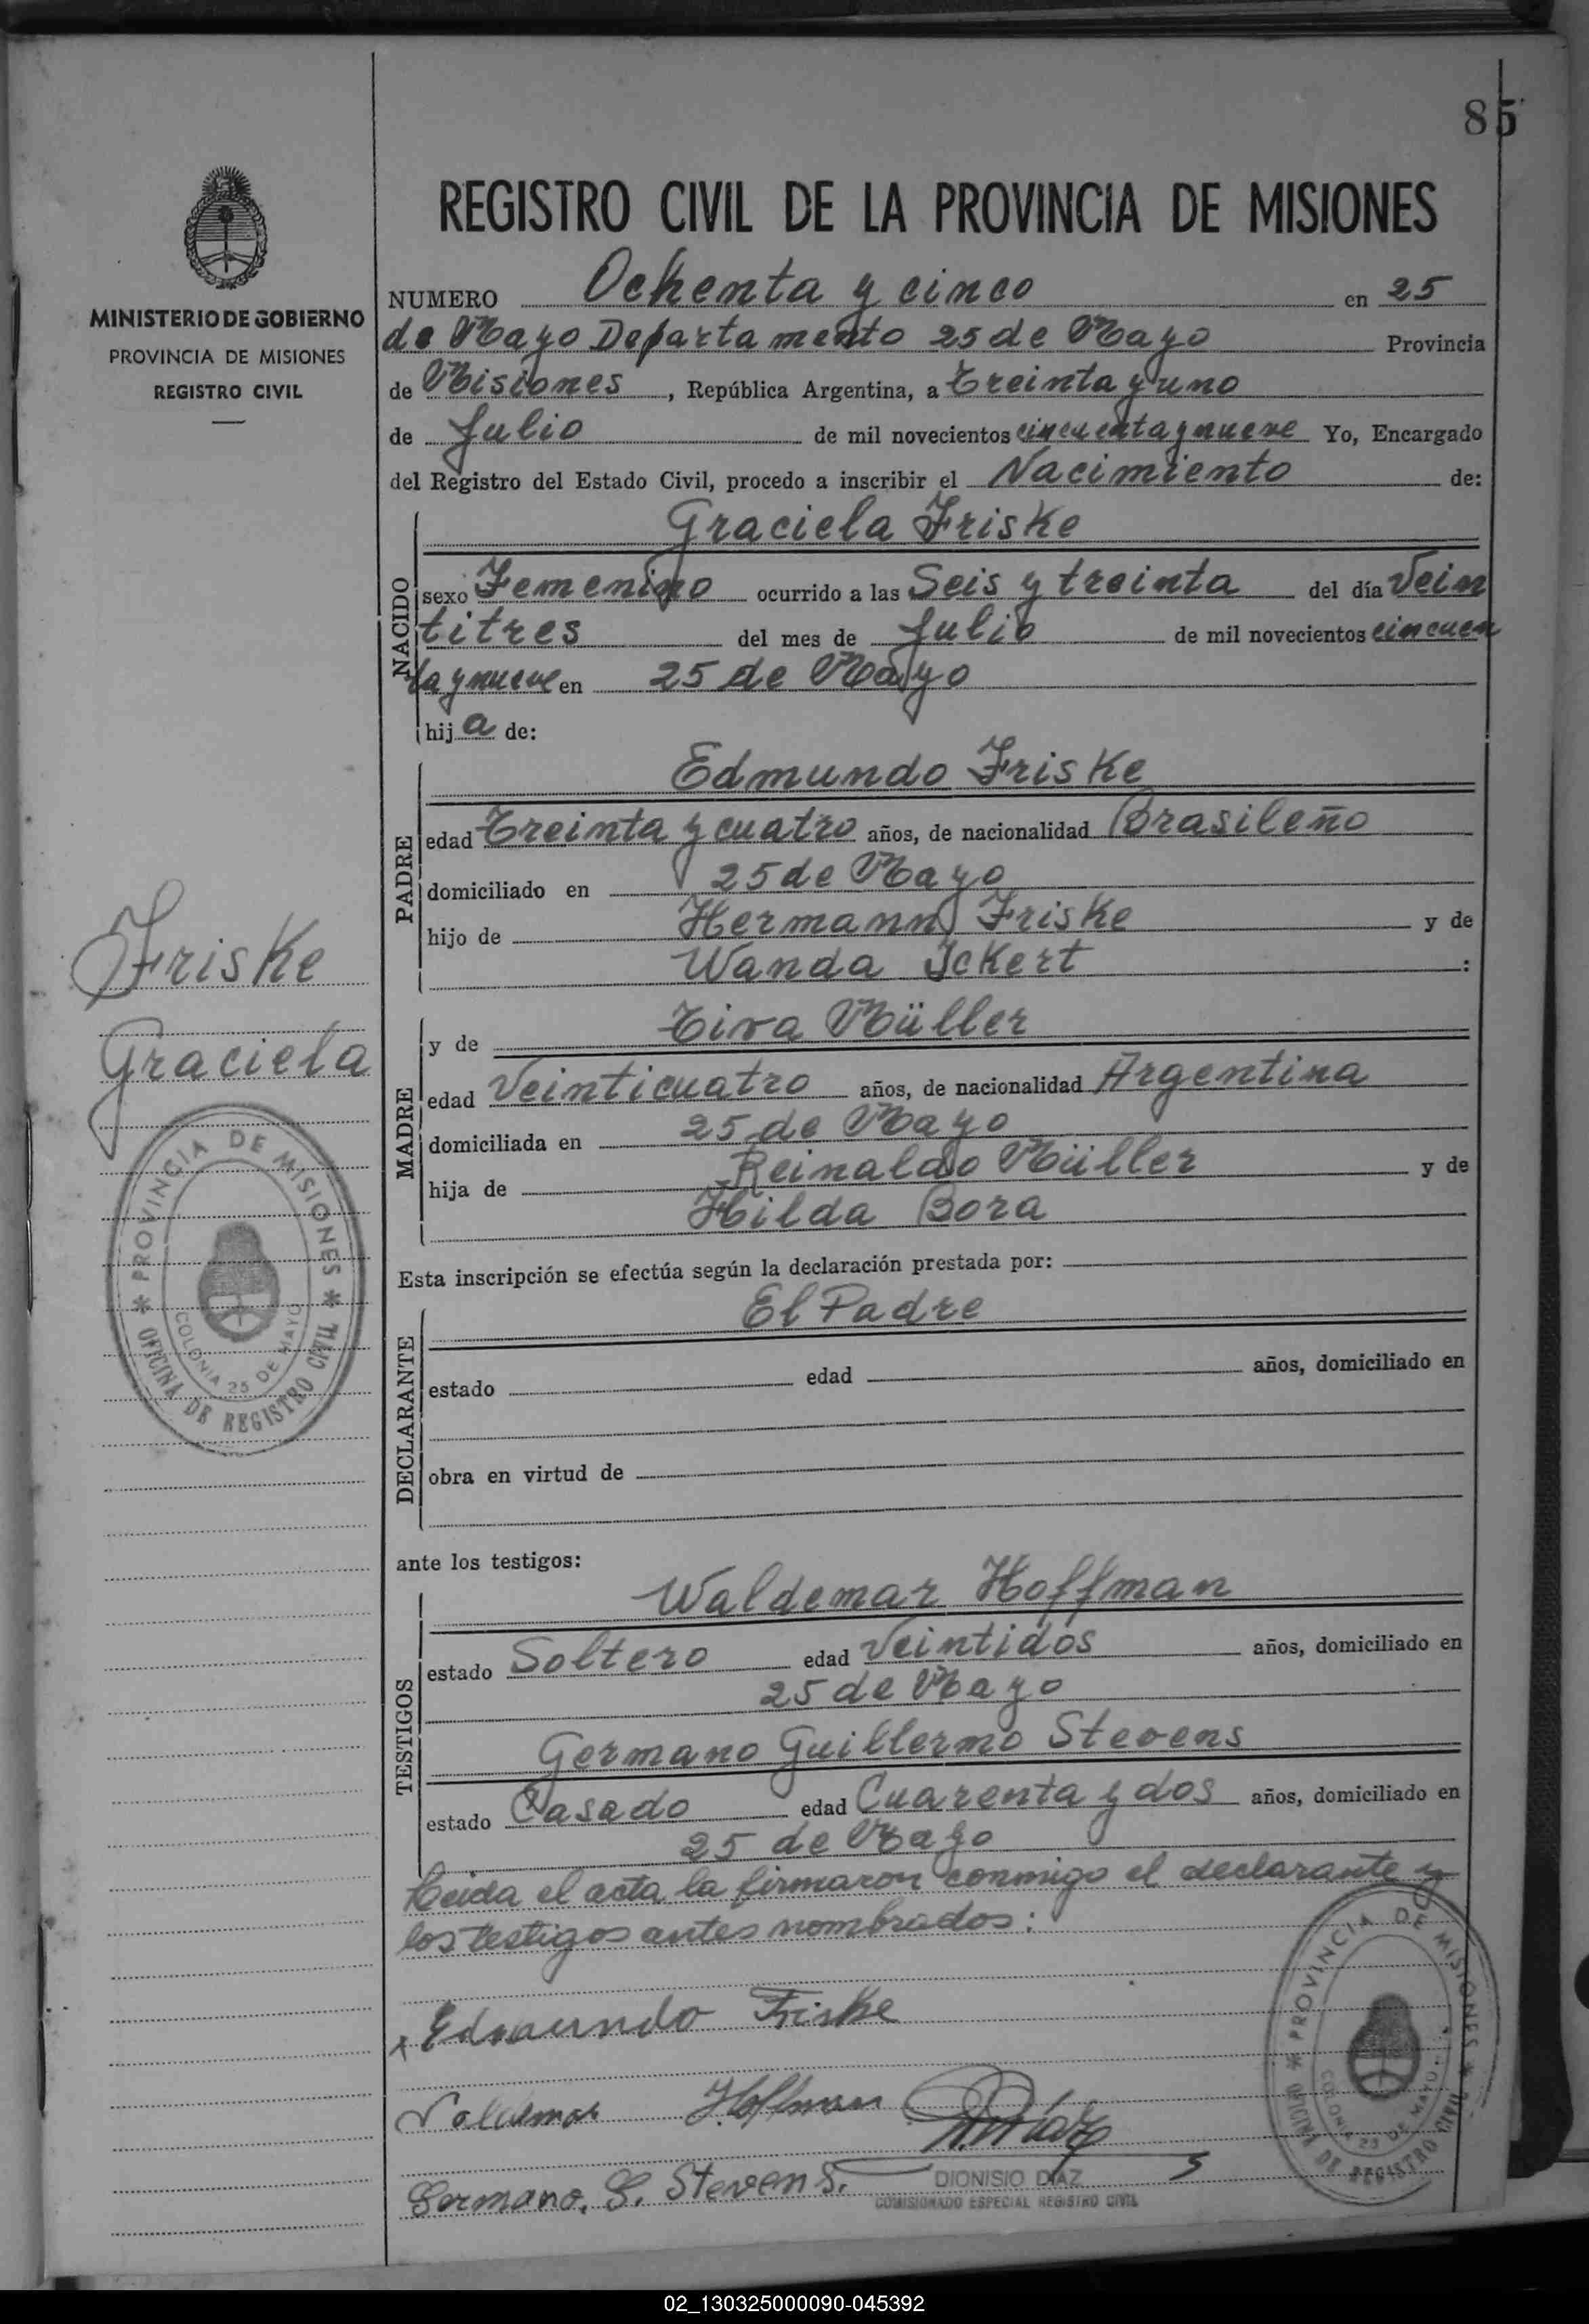 85
REGISTRO CIVIL DE LA PROVINCIA DE MISIONES
MINISTERIO DE GOBIERNO
PROVINCIA DE MISIONES
REGISTRO CIVIL
NUMERO Ochenta y cinco en 25
de Mayo Departamento 25 de Mayo Provincia
de Misiones, República Argentina, a Treinta y uno
de Julio de mil novecientos cincuenta y nueve Yo, Encargado
del Registro del Estado Civil, procedo a inscribir el Nacimiento de:
NACIDO
Graciela Friske
sexo Femenino ocurrido a las Seis y treinta del día Vein
titres del mes de Julio de mil novecientos cincuen
ta y nueve en 25 de Mayo
hija de:
PADRE
Edmundo Friske
edad Treinta y cuatro años, de nacionalidad Brasileño
domiciliado en 25 de Mayo
hijo de Hermann Friske y de
Wanda Ickert :
MADRE
y de Müller
edad Veinticuatro años, de nacionalidad Argentina
domiciliada en 25 de Mayo
hija de Reinaldo Müller y de
Hilda Bora
Friske
Graciela
PROVINCIA DE MISIONES
COLONIA 25 DE MAYO
OFICINA DE REGISTRO CIVIL
Esta inscripción se efectúa según la declaración prestada por:
DECLARANTE
El Padre
estado edad años, domiciliado en
obra en virtud de
ante los testigos:
TESTIGOS
Waldemar Hoffman
estado Soltero edad Veintidós años, domiciliado en
25 de Mayo
Germano Guillermo Stevens
estado Casado edad Cuarenta y dos años, domiciliado en
25 de Mayo
Leida el acta la firmaron conmigo el declarante y
los testigos antes nombrados:
x Edmundo Friske
Valdemar Hoffman
Germano. G. Stevens.
DIONISIO DIAZ
COMISIONADO ESPECIAL REGISTRO CIVIL
PROVINCIA DE MISIONES
COLONIA 25 DE MAYO
OFICINA DE REGISTRO CIVIL
02_130325000090-045392